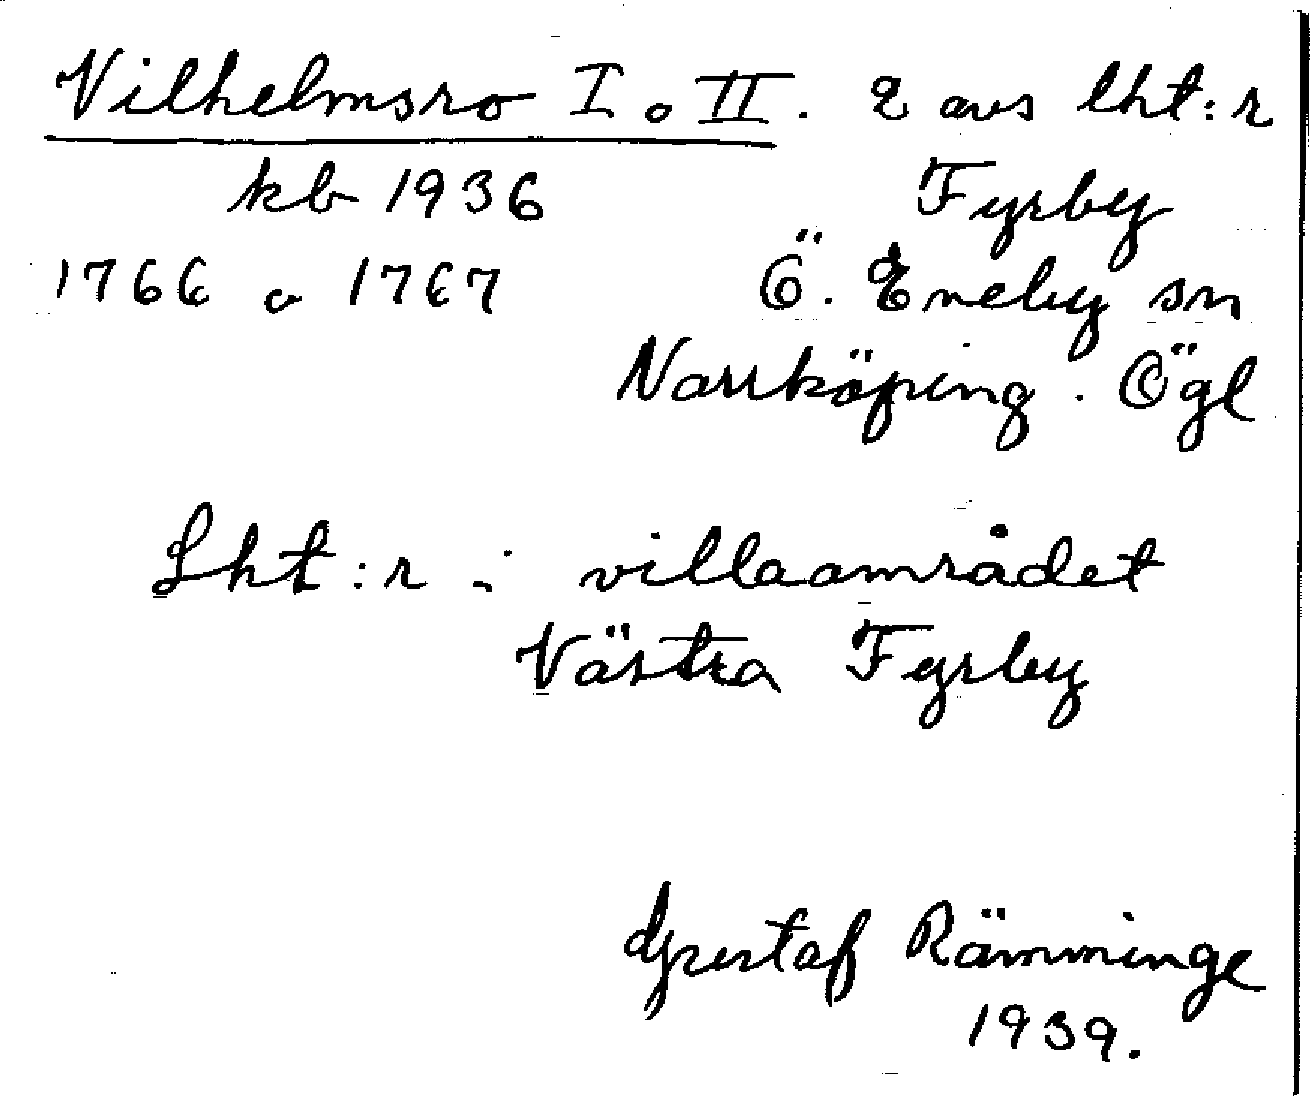 Vilhelmsro I o II. 2 avs lht:r
kb 1936 Fyrby
1766 o 1767 Ö. Eneby sn
Norrköping. Ögl
Lht:r i villaområdet
Västra Fyrby
Gustaf Rämminge
1939.